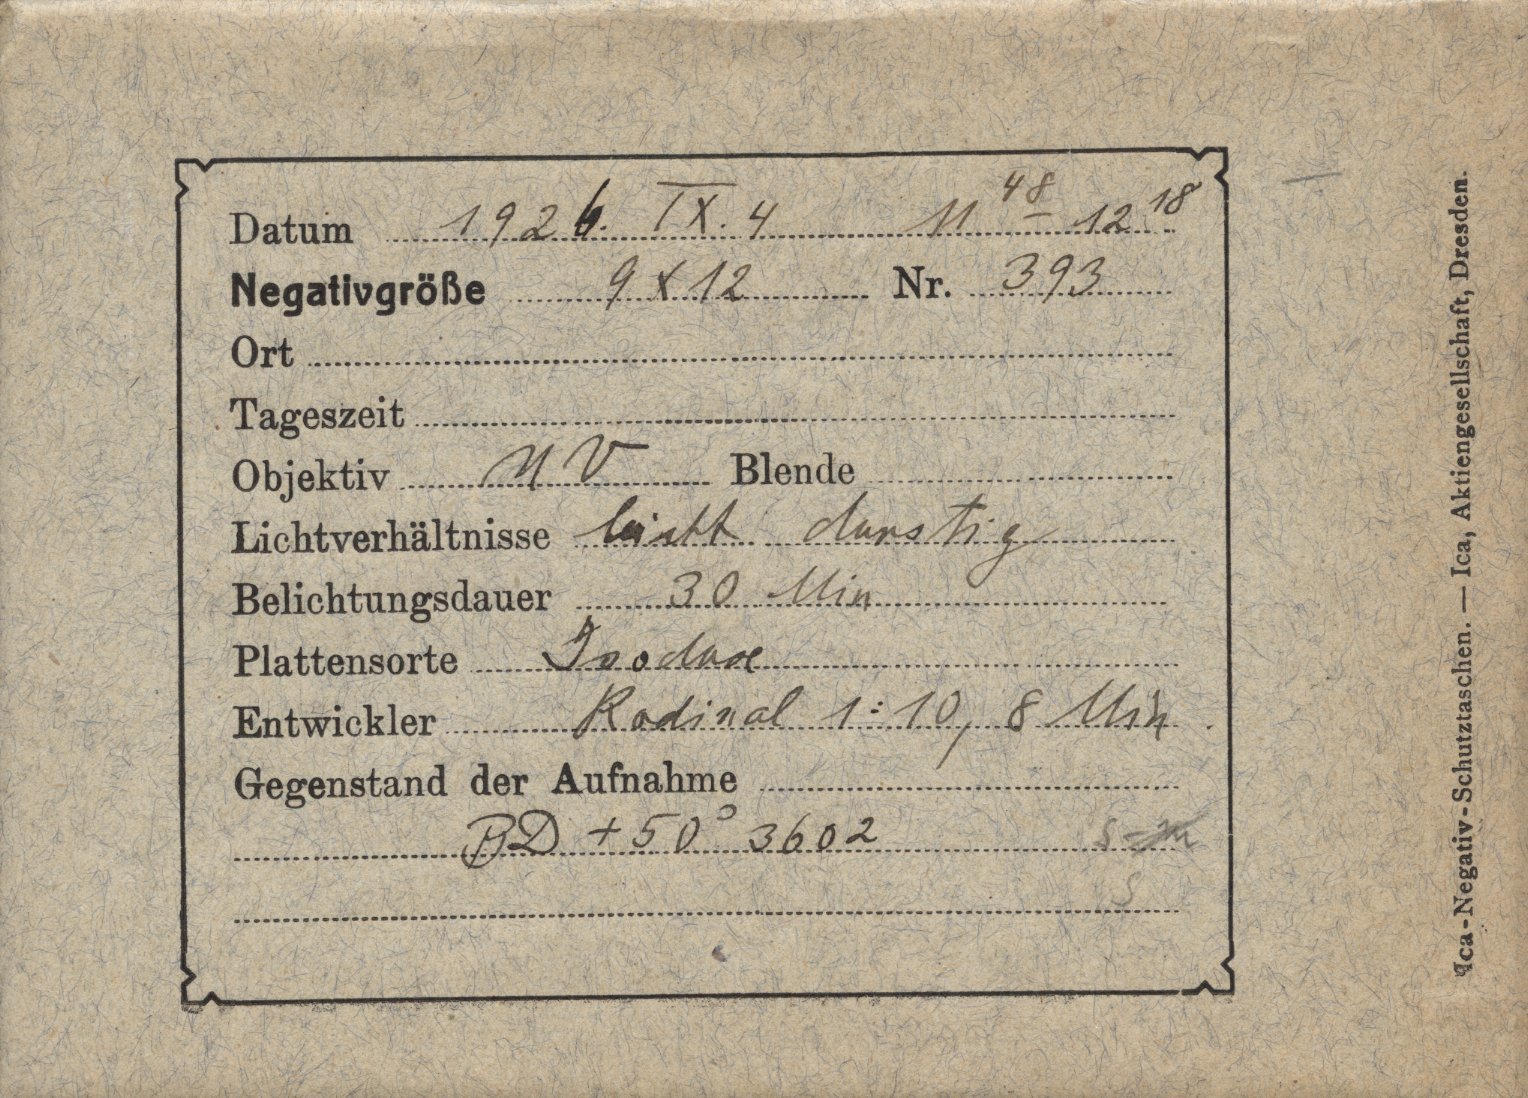 Datum 1926. IX. 4 11 48 – 12 18
Negativgröße 9 x 12 Nr. 393
Ort
Tageszeit
Objektiv UV Blende
Lichtverhältnisse leicht dunstig
Belichtungsdauer 30 Min
Plattensorte Isodux
Entwickler Rodinal 1:10, 8 Min.
Gegenstand der Aufnahme
BD +50° 3602 s-m
s
Ica-Negativ-Schutztaschen. — Ica, Aktiengesellschaft, Dresden.